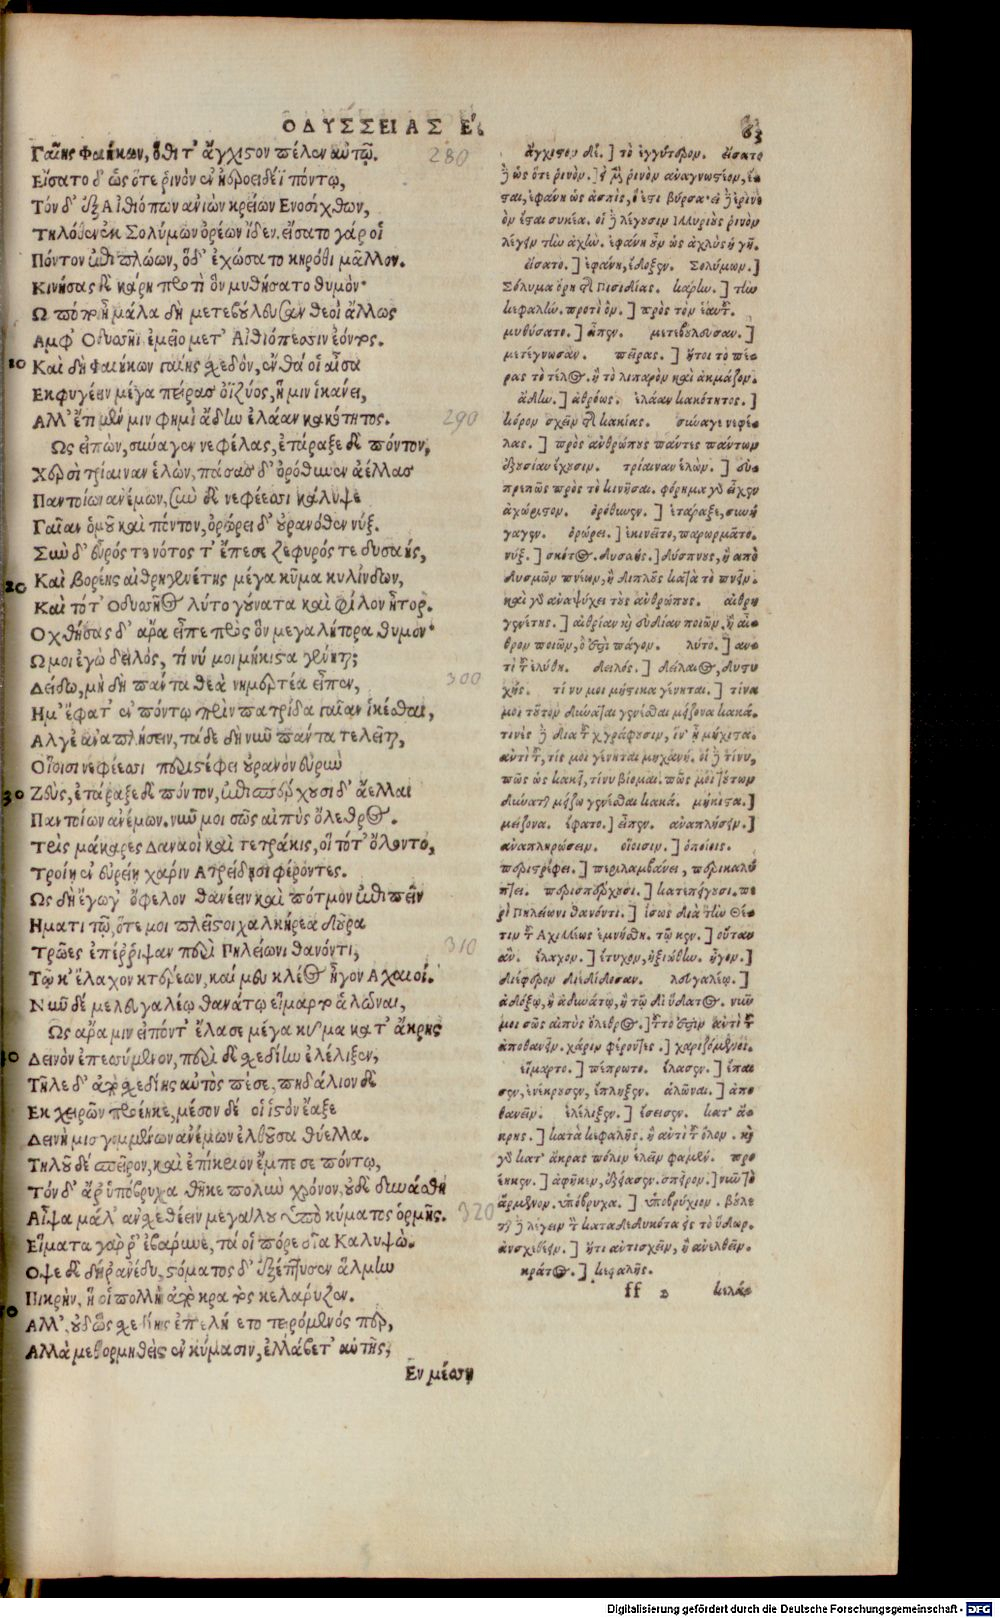 ΟΔΥΣΣΕΙΑΣ Ε.
83
Γαίης Φαιήκων, ὅθι τ' ἄγχιστον πέλεν αὐτῷ. 280
Εἴσατο δ' ὡς ὅτε ῥινὸν ἐν ἠεροειδέϊ πόντῳ,
Τὸν δ' ἐξ Αἰθιόπων ἀνιὼν κρείων Ενοσίχθων,
Τηλόθεν ἐκ Σολύμων ὀρέων ἴδεν. εἴσατο γάρ οἱ
Πόντον ἐπιπλώων, ὅδ' ἐχώσατο κηρόθι μᾶλλον.
Κινήσας δὲ κάρη προτὶ ὃν μυθήσατο θυμόν·
Ω πόποι ἦ μάλα δὴ μετεβούλευσαν θεοὶ ἄλλως
Αμφ' Οδυσῆϊ ἐμεῖο μετ' Αἰθιόπεσσιν ἐόντος.
10 Καὶ δὴ Φαιήκων γαίης σχεδὸν, ἔνθά οἱ αἶσα
Εκφυγέειν μέγα πεῖρας ὀϊζύος, ἥ μιν ἱκάνει,
Αλλ' ἔτι μέν μιν φημὶ ἄδην ἐλάαν κακότητος. 290
Ως εἰπὼν, σύναγεν νεφέλας, ἐτάραξε δὲ πόντον,
Χερσὶ τρίαιναν ἑλὼν, πάσας δ' ὀρόθυνεν ἀέλλας
Παντοίων ἀνέμων, σὺν δὲ νεφέεσσι κάλυψε
Γαῖαν ὁμοῦ καὶ πόντον, ὀρώρει δ' οὐρανόθεν νύξ.
Σὺν δ' εὖρός τε νότος τ' ἔπεσε ζεφυρός τε δυσαὴς,
20 Καὶ βορέης αἰθρηγενέτης μέγα κῦμα κυλίνδων,
Καὶ τότ' Οδυσῆος λύτο γούνατα καὶ φίλον ἦτορ.
Οχθήσας δ' ἄρα εἶπε πρὸς ὃν μεγαλήτορα θυμόν·
Ω μοι ἐγὼ δειλὸς, τί νύ μοι μήκιστα γένηται;
Δείδω, μὴ δὴ πάντα θεὰ νημερτέα εἶπεν, 300
Ημ' ἔφατ' ἐν πόντῳ πρὶν πατρίδα γαῖαν ἱκέσθαι,
Αλγε' ἀναπλήσειν, τάδε δὴ νῦν πάντα τελεῖται,
Οἵοισι νεφέεσσι περιστέφει οὐρανὸν εὐρὺν
30 Ζεὺς, ἐτάραξε δὲ πόντον, ἐπισπέρχουσι δ' ἄελλαι
Παντοίων ἀνέμων. νῦν μοι σῶς αἰπὺς ὄλεθρος.
Τρὶς μάκαρες Δαναοὶ καὶ τετράκις, οἳ τότ' ὄλοντο,
Τροίῃ ἐν εὐρείῃ χάριν Ατρείδῃσι φέροντες.
Ως δὴ ἔγωγ' ὄφελον θανέειν καὶ πότμον ἐπισπεῖν
Ηματι τῷ, ὅτε μοι πλεῖστοι χαλκήρεα δοῦρα
Τρῶες ἐπέῤῥιψαν περὶ Πηλείωνι θανόντι, 310
Τῷ κ' ἔλαχον κτερέων, καί μευ κλέος ἦγον Αχαιοί.
Νῦν δέ με λευγαλέῳ θανάτῳ εἵμαρτο ἁλῶναι,
Ως ἄρα μιν εἰπόντ' ἔλασε μέγα κῦμα κατ' ἄκρης
Δεινὸν ἐπεσσύμενον, περὶ δὲ σχεδίην ἐλέλιξεν,
Τῆλε δ' ἀπὸ σχεδίης αὐτὸς πέσε, πηδάλιον δὲ
Εκ χειρῶν προέηκε, μέσον δέ οἱ ἱστὸν ἔαξε
Δεινὴ μισγομένων ἀνέμων ἐλθοῦσα θύελλα.
Τηλοῦ δέ σπεῖρον, καὶ ἐπίκριον ἔμπεσε πόντῳ,
Τὸν δ' ἄρ' ὑπόβρυχα θῆκε πολὺν χρόνον, οὐδὲ δυνάσθη
Αἶψα μάλ' ἀνσχεθέειν μεγάλου ὑπὸ κύματος ὁρμῆς. 320
Εἵματα γάρ ῥ' ἐβάρυνε, τά οἱ πόρε δῖα Καλυψώ.
Οψε δὲ δή ῥ' ἀνέδυ, στόματος δ' ἐξέπτυσεν ἅλμην
Πικρὴν, ἥ οἱ πολλὴ ἀπὸ κρατὸς κελάρυζεν.
Αλλ' οὐδ' ὣς σχεδίης ἐπελήθετο τειρόμενός περ,
Αλλὰ μεθορμηθεὶς ἐν κύμασιν, ἐλλάβετ' αὐτῆς,
Εν μέσσῃ
ἄγχιστον δέ.] τὸ ἐγγύτερον. εἴσατο
εἴσατο.] ἐφάνη, ἔδοξεν. Σολύμων.]
Σόλυμα ὄρη τῆς Πισιδίας. κάρην.] τὴν
κεφαλήν. προτὶ ὃν.] πρὸς τὸν ἑαυτοῦ.
μυθύσατο.] εἶπεν. μετεβούλευσαν.]
μετέγνωσαν. πεῖρας.] ἤτοι τὸ πέ-
ρας τὸ τέλος. ἢ τὸ λιπαρὸν καὶ ἀκμάζον.
ἄδην.] ἀθρόως. ἐλάαν κακότητος.]
κόρον σχεῖν τῆς κακίας. σύναγε νεφέ-
λας.] πρὸς ἀνθρώπους πάντες πάντων
ἐξουσίαν ἔχουσιν. τρίαιναν ἑλών.]
ἀχώριστον. ὀρόθυνεν.] ἐτάραξε, συνή
γαγεν. ὀρώρει.] ἐκινεῖτο, παρωρμᾶτο.
νύξ.] σκότος. δυσαής.] δύσπνους, ἢ ἀπὸ
δυσμῶν πνέων, ἢ διπλῶς κατὰ τὸ πνεῖν.
καὶ γὰρ ἀναψύχει τοὺς ἀνθρώπους. αἰθρη
γενέτης.] αἰθρίαν καὶ εὐδίαν ποιῶν. ἢ αἶ-
θρον ποιῶν, ὅ ἐστι πάγον. λύτο.] ἀν-
τὶ τοῦ ἐλύθη. δειλός.] δείλαιος, δυστυ
χής. τί νυ μοι μήκιστα γένηται.] τίνα
μοι τούτων δύναται γενέσθαι μείζονα κακά.
δύναται μείζω γενέσθαι κακά. μήκιστα.]
μείζονα. ἔφατο.] εἶπεν. ἀναπλήσειν.]
ἀναπληρώσειν. οἵοισιν.] ὁποίοις.
περιστρέφει.] περιλαμβάνει, περικαλύ
πτει. περισπέρχουσι.] κατεπείγουσι. πε
ρὶ Πηλείωνι θανόντι.] ἴσως διὰ τὴν Θέ-
τιν τοῦ Αχιλλέως ἐμνήσθη. τῷ κεν.] οὕτως
ἄν. ἔλαχον.] ἔτυχον, ἠξιώθην. ἦγον.]
διέφερον διεδίδοσαν. λευγαλέῳ.]
ἀδόξῳ, ἢ ἀδυνάτῳ, ἢ τῷ δι' ὕδατος. νῦν
μοι σῶς αἰπὺς ὄλεθρος.]
ἀποθανεῖν. χάριν φέροντες.] χαριζόμενοι.
εἵμαρτο.] πέπρωτο. ἔλασεν.] ἔπαι
σεν, ἐνέκρουσεν, ἔπληξεν. ἁλῶναι.] ἀπο
θανεῖν. ἐλέλιξεν.] ἔσεισεν. κατ' ἄ-
κρης.] κατὰ κεφαλῆς. ἢ ἀντὶ τοῦ ὅλον. καὶ
γὰρ κατ' ἄκρας πόλιν ἑλεῖν φαμέν. προ
έηκεν.] ἀφῆκεν,
ἄρμενον. ὑπόβρυχα.] ὑποβρύχιον. βούλε
ται δὲ λέγειν ἢ καταδεδυκότα εἰς τὸ ὕδωρ.
ἀνσχεθέειν.] ἤτι ἀντισχεῖν, ἢ ἀνελθεῖν.
κράτος.] κεφαλῆς.
ff 2 κελά-
Digitalisierung gefördert durch die Deutsche Forschungsgemeinschaft - DFG